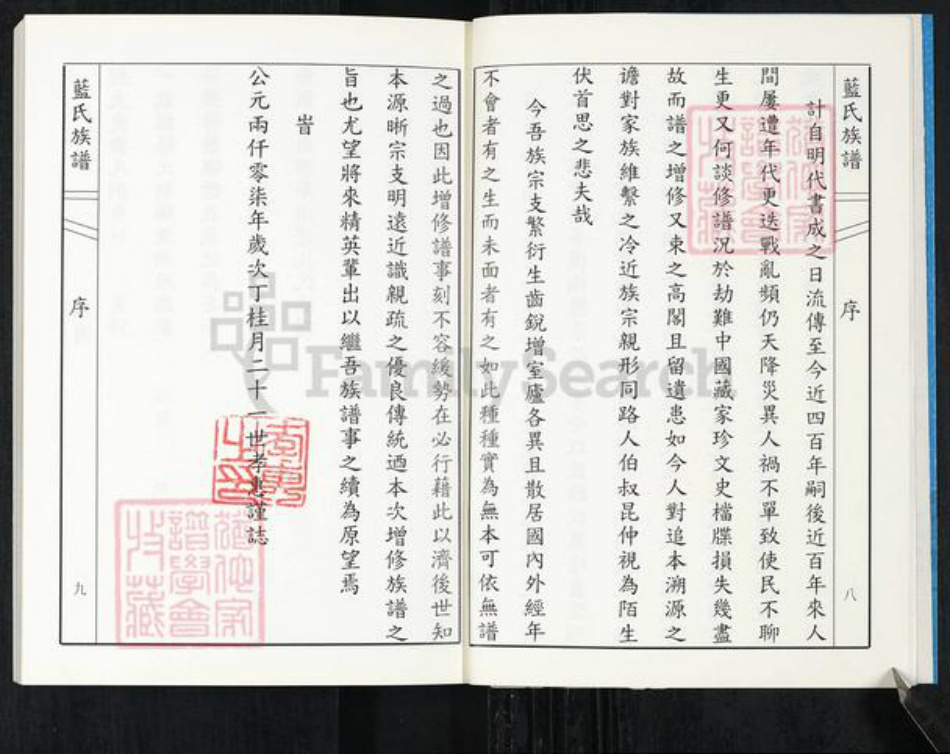 藍氏族譜
序
八
計自明代書成之日流傳至今近四百年嗣後近百年來人
間屢遭年代更迭戰亂頻仍天降災異人禍不單致使民不聊
生更又何談修譜況於劫難中國藏家珍文史檔牒損失幾盡
故而譜之增修又束之高閣且留遺患如今人對追本溯源之
譫對家族維繫之冷近族宗親形同路人伯叔昆仲視為陌生
伏首思之悲夫哉
今吾族宗支繁衍生齒銳增室廬各異且散居國內外經年
不會者有之生而未面者有之如此種種實為無本可依無譜
之過也因此增修譜事刻不容緩勢在必行藉此以濟後世知
本源晰宗支明遠近識親疏之優良傳統迺本次增修族譜之
旨也尤望將來精英輩出以繼吾族譜事之續為原望焉
旹
公元兩仟零柒年歲次丁桂月二十一世孝惠謹誌
藍氏族譜
序
九
FamilySearch